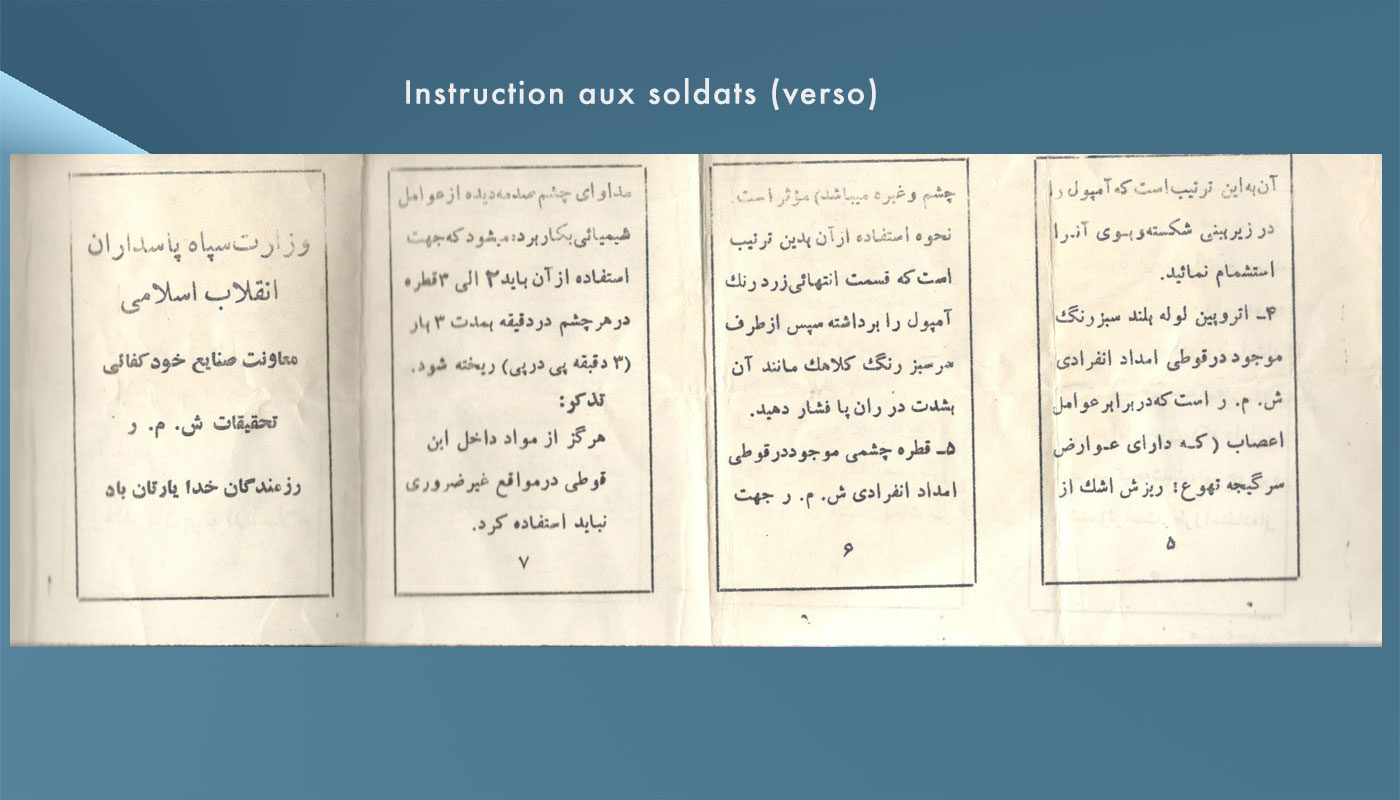 Instruction aux soldats (verso)
آن به این ترتیب است که آمپول را
در زیر بینی شکسته و بوی آنرا
استشمام نمائید.
۴ـ اتروپین لوله بلند سبز رنگ
موجود در قوطی امداد انفرادی
ش. م. ر است که در برابر عوامل
اعصاب (که دارای عوارض
سرگیجه تهوع؛ ریزش اشك از
۵
چشم و غیره میباشد) مؤثر است.
نحوه استفاده از آن بدین ترتیب
است که قسمت انتهائی زرد رنك
آمپول را برداشته سپس از طرف
سر سبز رنگ کلاهك مانند آن
بشدت در ران پا فشار دهید.
۵ـ قطره چشمی موجود در قوطی
امداد انفرادی ش. م. ر جهت
۶
مداوای چشم صدمه دیده از عوامل
شیمیائی بکار برده میشود که جهت
استفاده از آن باید ۲ الی ۳ قطره
در هر چشم در دقیقه بمدت ۳ بار
(۳ دقیقه پی در پی) ریخته شود.
تذکر:
هرگز از مواد داخل این
قوطی در مواقع غیر ضروری
نباید استفاده کرد.
۷
وزارت سپاه پاسداران
انقلاب اسلامی
معاونت صنایع خودکفائی
تحقیقات ش. م. ر
رزمندگان خدا یارتان باد